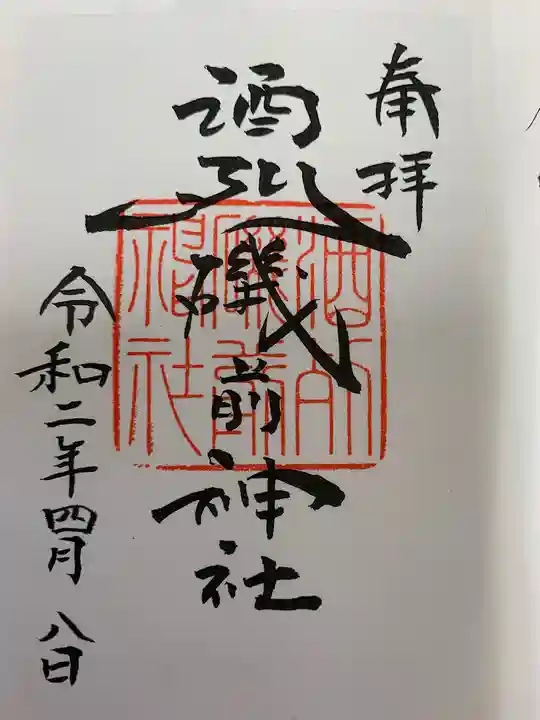 奉拝
酒列磯前神社
酒列
磯前
神社
令和二年四月八日